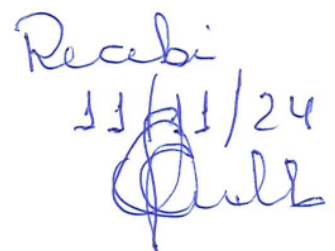 Recebi
11/11/24